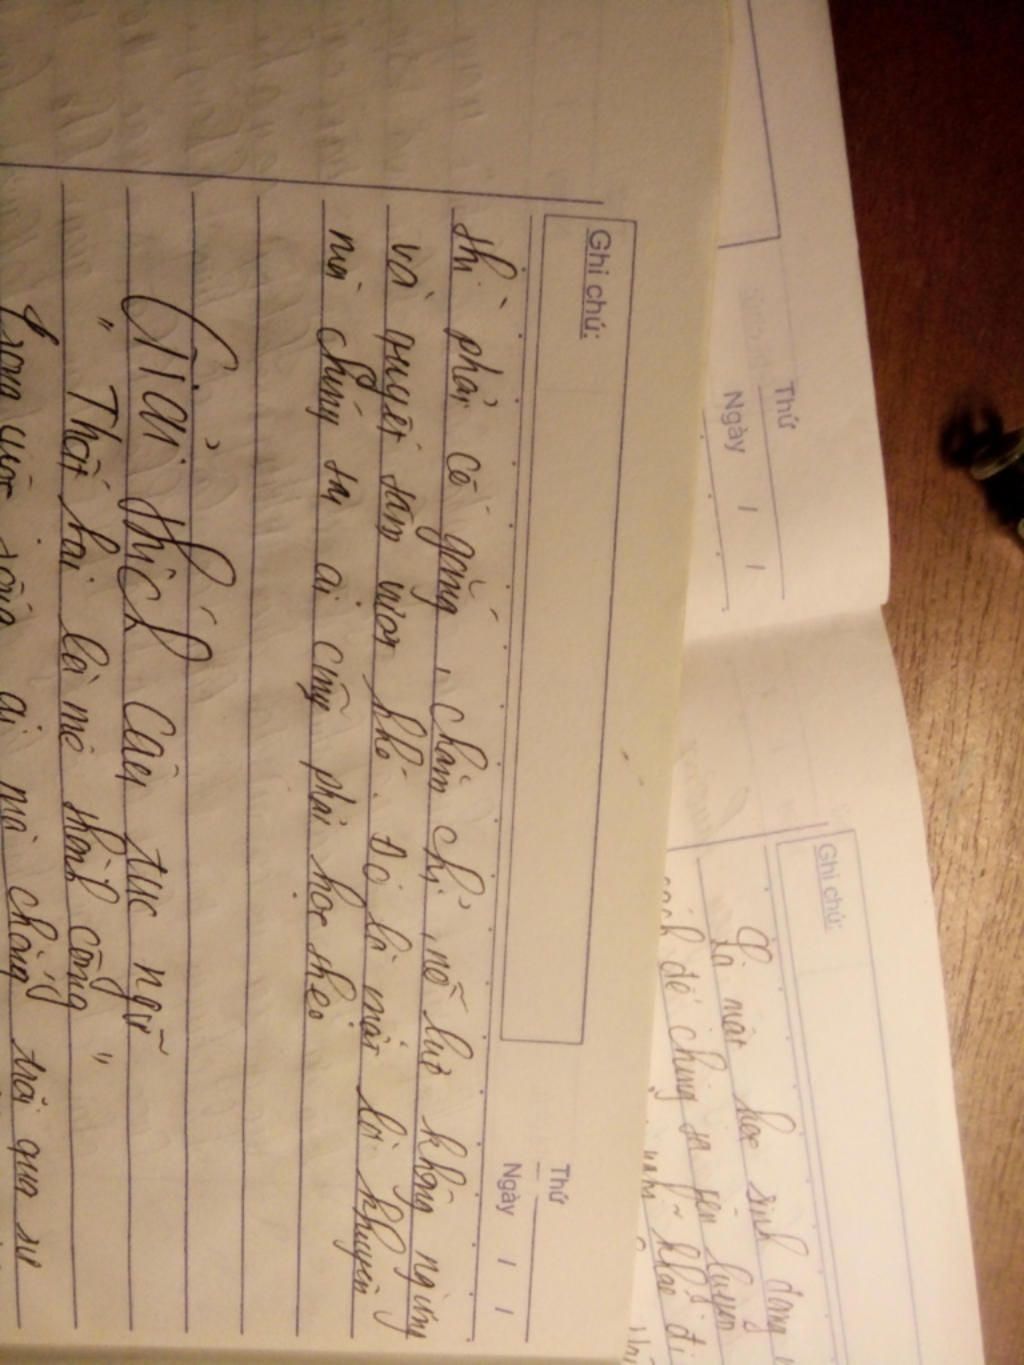 Ghi chú:
Thứ
Ngày / /
thì phải cố gắng, chăm chỉ, nỗ lực không ngừng
và quyết tâm vượt khó. Đó là một lời khuyên
mà chúng ta ai cũng phải học theo
Giải thích câu tục ngữ
" Thất bại là mẹ thành công "
Trong cuộc sống ai mà chẳng trải qua sự
Thứ
Ngày / /
Ghi chú:
Là một học sinh đang
sách để chúng ta rèn luyện
khổ đi